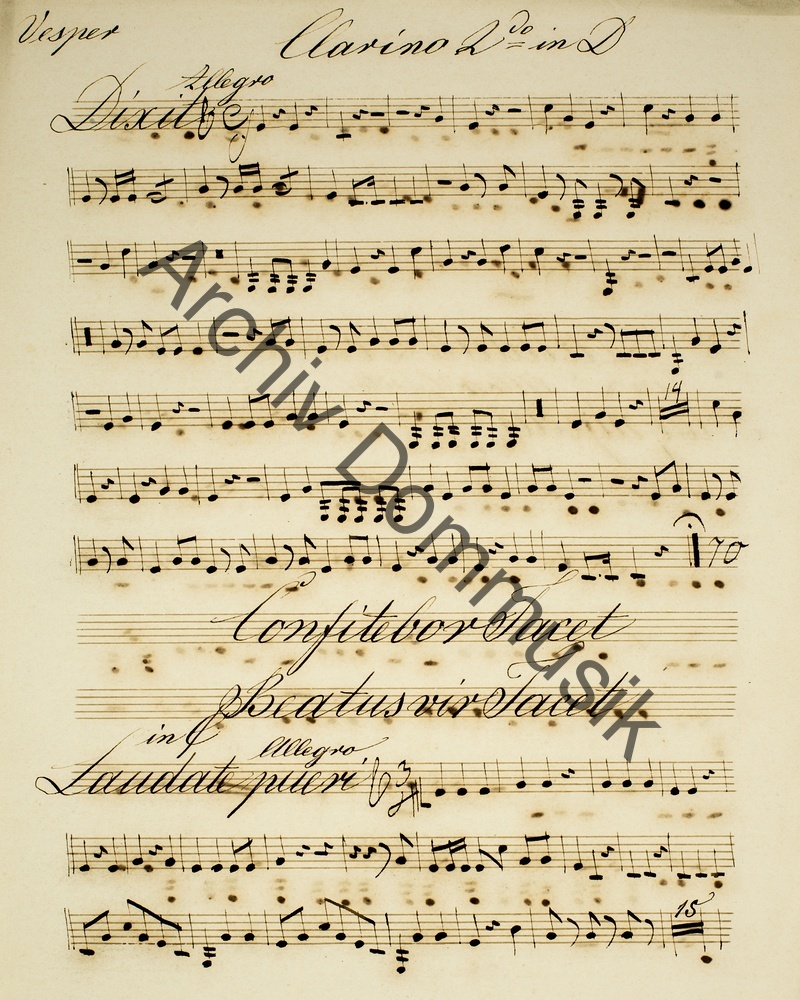 Vesper
Clarino 2do in D
Allegro
Dixit
14
70
Confitebor Tacet
Beatus vir Tacet
in C
Allegro
Laudate pueri
3/4
15
Archiv Dommusik